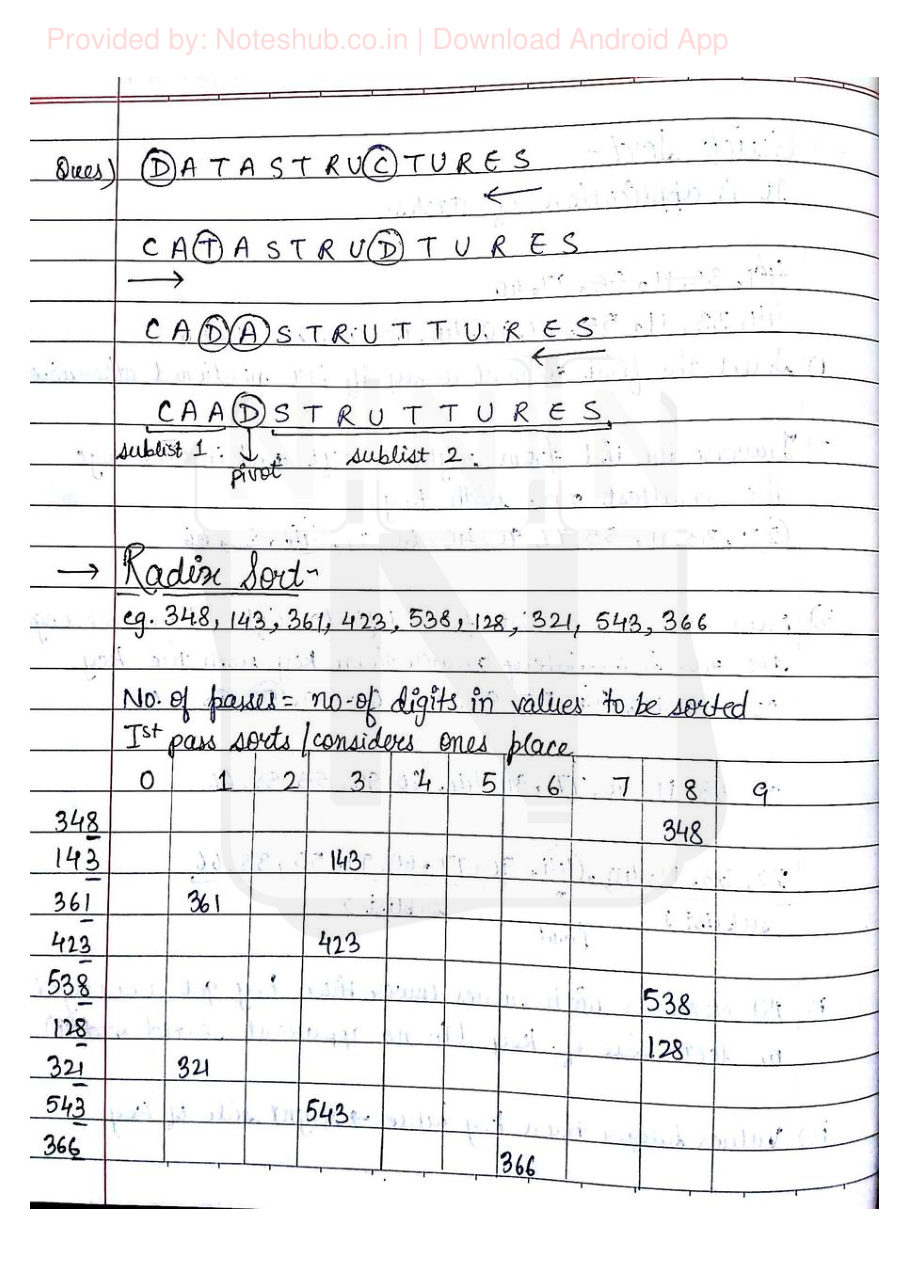 Provided by: Noteshub.co.in | Download Android App
Ques) D A T A S T R U C T U R E S
←
C A T A S T R U D T U R E S
→
C A D A S T R U T T U R E S
←
C A A D S T R U T T U R E S
sublist 1. ↓ pivot sublist 2.
→ Radix Sort-
eg. 348, 143, 361, 423, 538, 128, 321, 543, 366
No. of passes = no-of digits in values to be sorted
Ist pass sorts / considers ones place
0 1 2 3 4 5 6 7 8 9
348 348
143 143
361 361
423 423
538 538
128 128
321 321
543 543
366 366